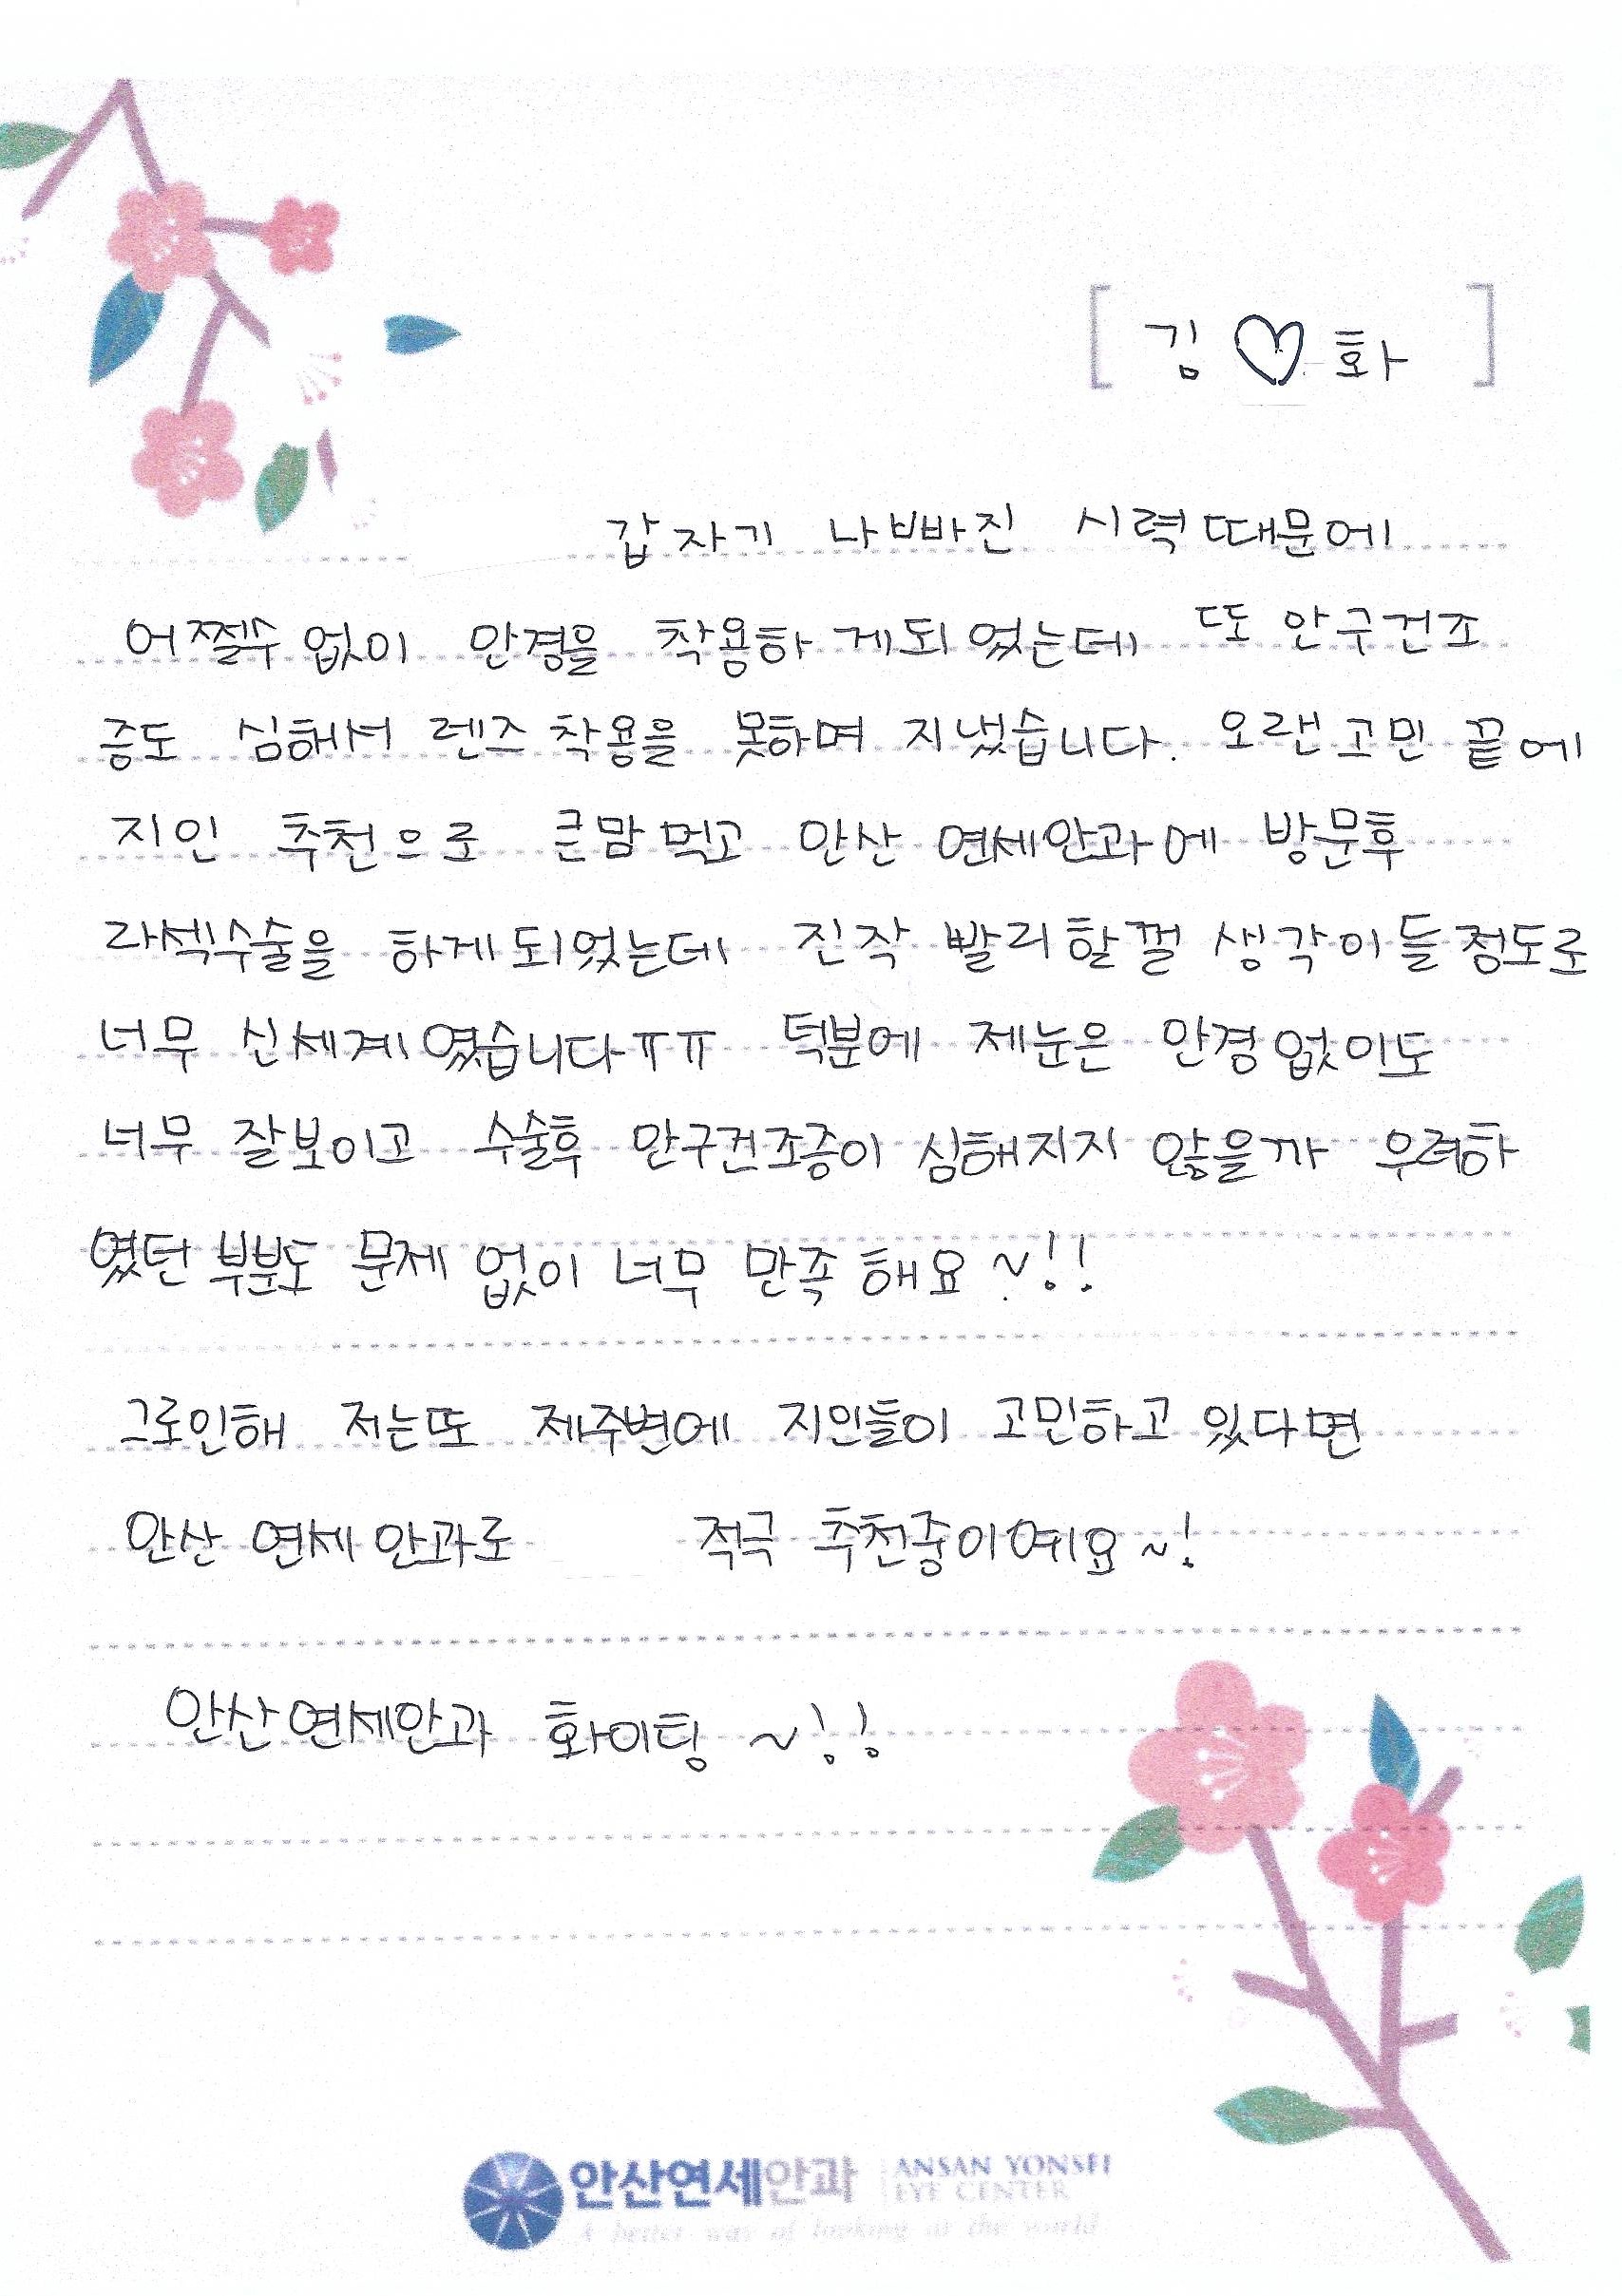 [ 김♡화 ]
갑자기 나빠진 시력때문에
어쩔수 없이 안경을 착용하게되었는데 또 안구건조
증도 심해서 렌즈착용을 못하며 지냈습니다. 오랜고민 끝에
지인 추천으로 큰맘먹고 안산 연세안과에 방문후
라섹수술을 하게되었는데 진작 빨리할껄 생각이들정도로
너무 신세계였습니다ㅠㅠ 덕분에 제눈은 안경없이도
너무 잘보이고 수술후 안구건조증이 심해지지 않을까 우려하
였던 부분도 문제 없이 너무 만족해요~!!
그로인해 저는또 제주변에 지인들이 고민하고 있다면
안산 연세안과로 적극 추천중이예요~!
안산연세안과 화이팅~!!
안산연세안과 ANSAN YONSEI
EYE CENTER
A better way of looking at the world